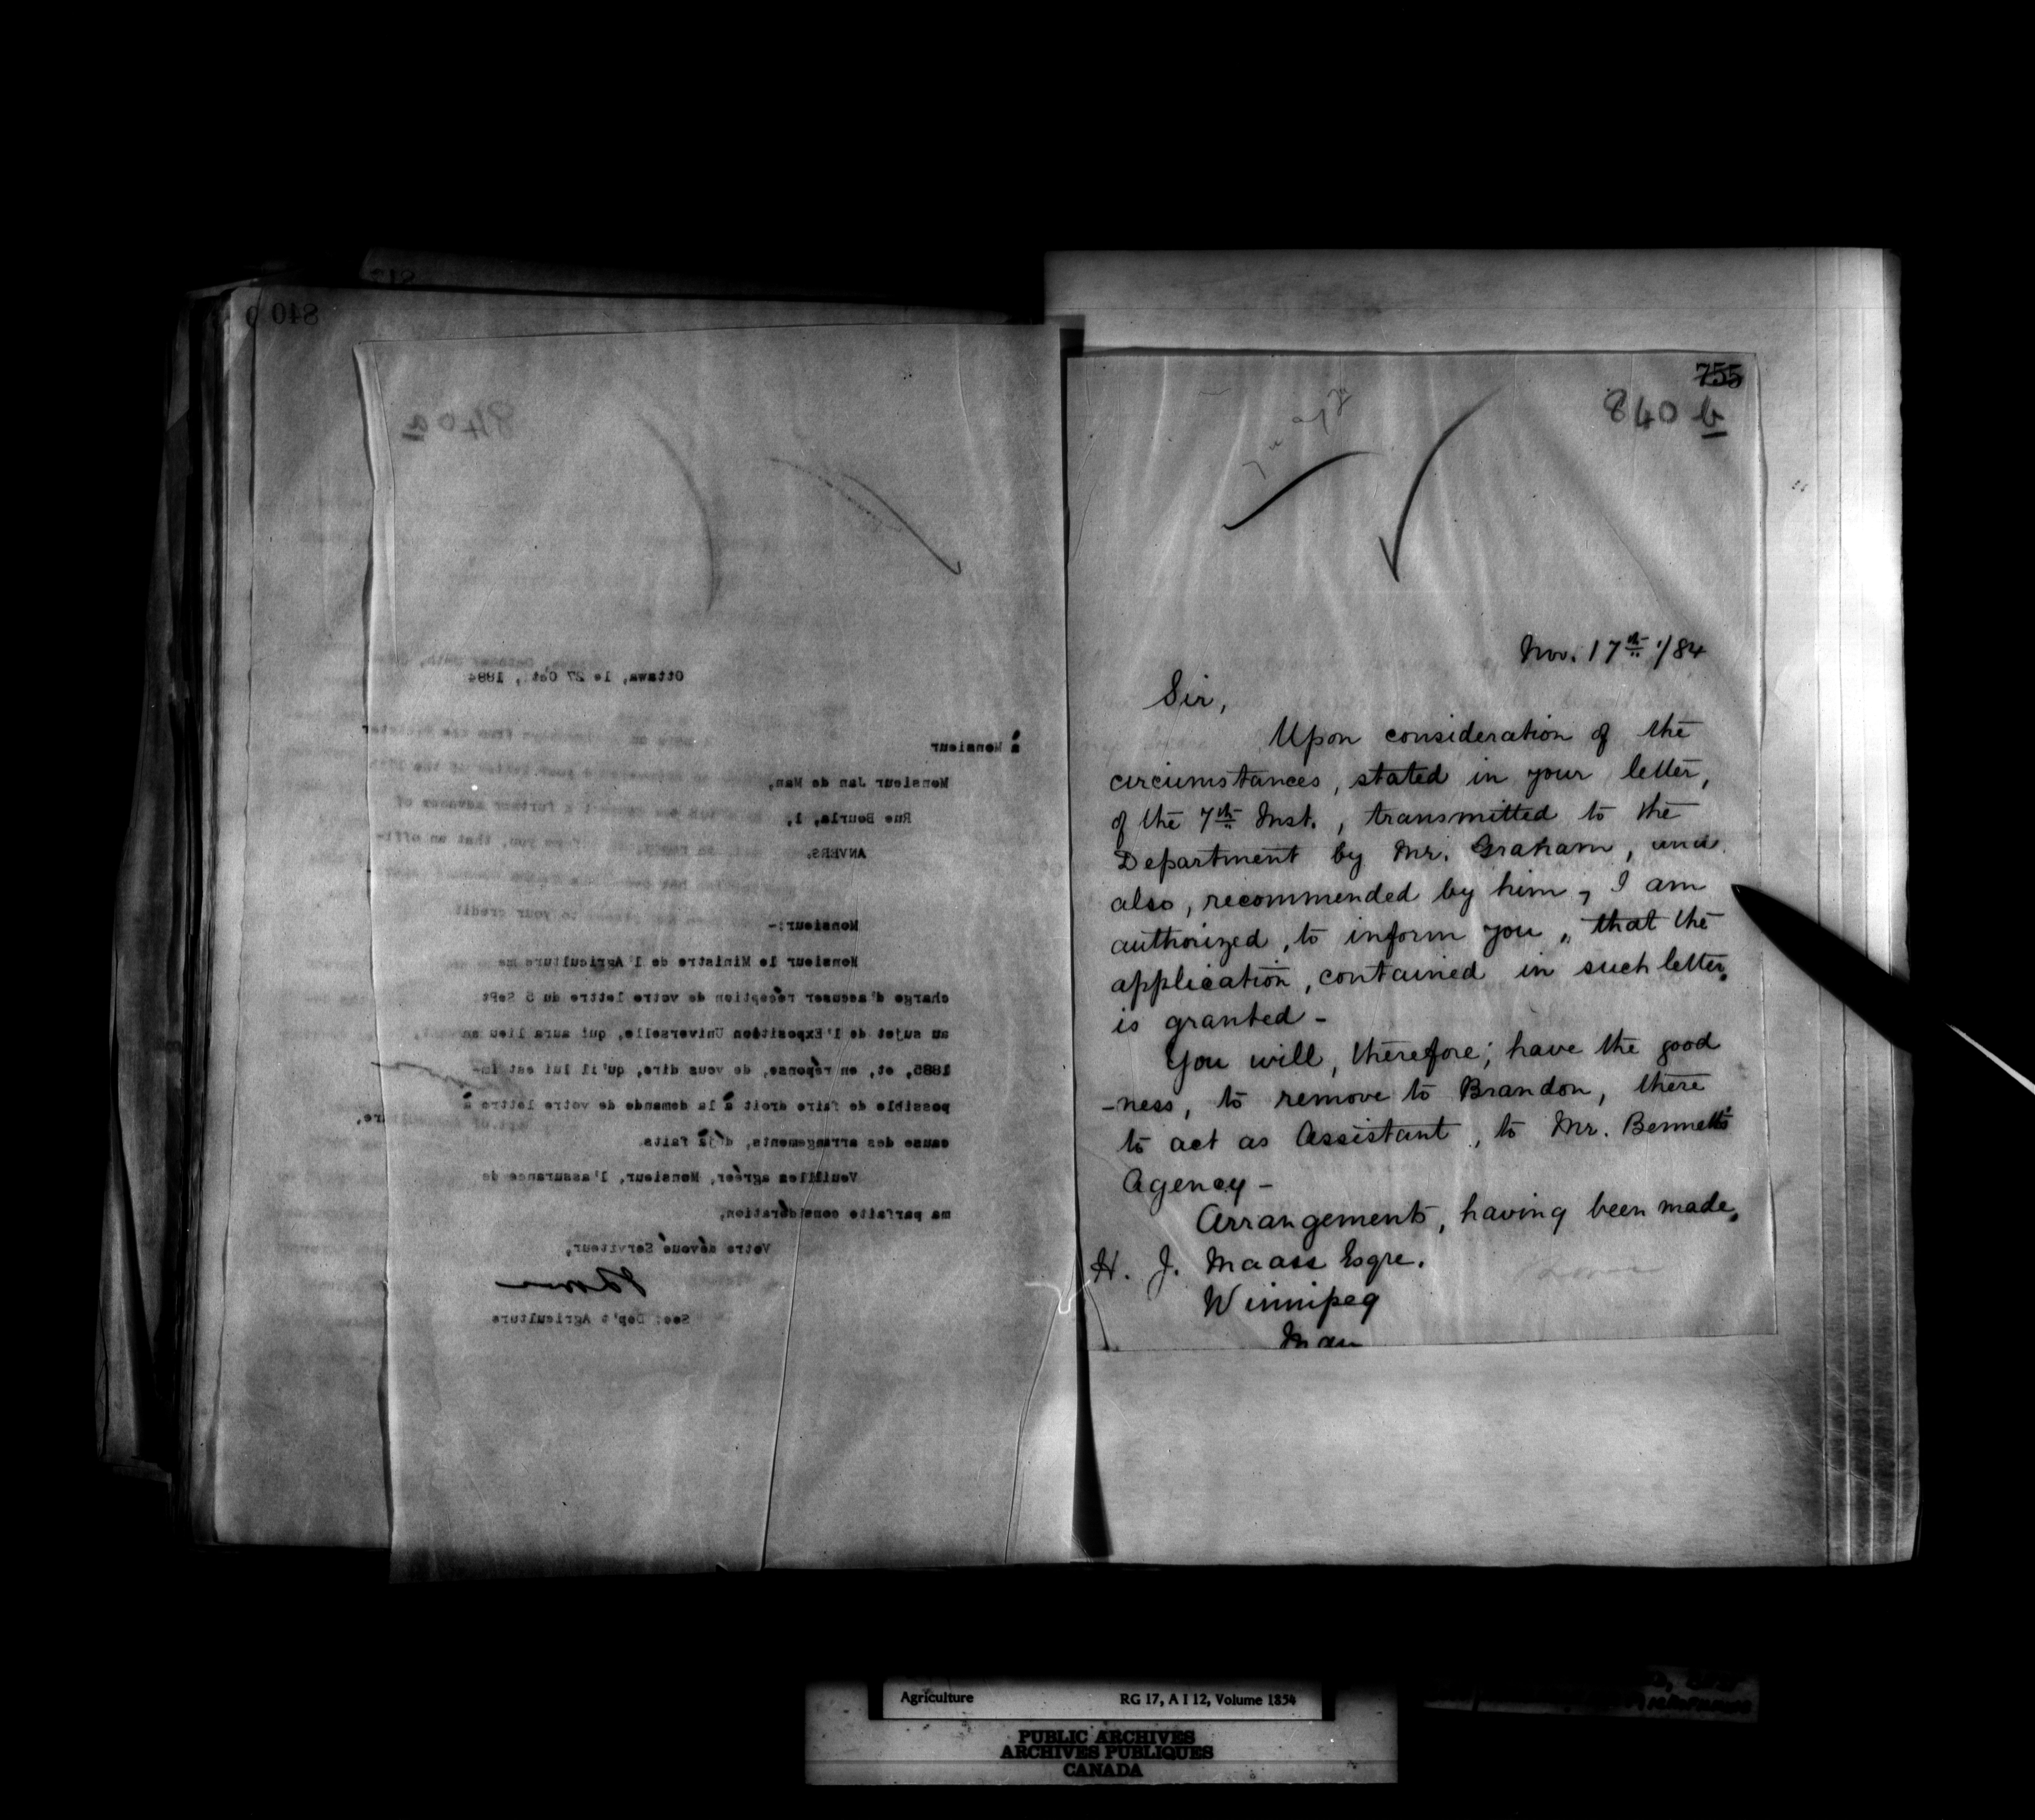 840
840 a
Ottawa, le 27 Oct., 1884
à Monsieur
Monsieur Jan de Man,
Rue Bourla, 1,
ANVERS.
Monsieur:-
Monsieur le Ministre de l'Agriculture me
charge d'accuser réception de votre lettre du 5 Sept
au sujet de l'Exposition Universelle, qui aura lieu en
1885, et, en réponse, de vous dire, qu'il lui est im-
possible de faire droit à la demande de votre lettre à
cause des arrangements, déjà faits.
Veuillez agréer, Monsieur, l'assurance de
ma parfaite considération,
Votre dévoué Serviteur,
Sec: Dep't Agriculture
755
840 b
Nov. 17th /84
Sir,
Upon consideration of the
circumstances, stated in your letter,
of the 7th Inst., transmitted to the
Department by Mr. Graham, and
also, recommended by him, I am
authorized, to inform you, that the
application, contained in such letter,
is granted -
You will, therefore, have the good
-ness, to remove to Brandon, there
to act as Assistant, to Mr. Bennett's
Agency -
Arrangements, having been made,
H. J. Maass Esqre.
Winnipeg
Man
Agriculture RG 17, A I 12, Volume 1854
PUBLIC ARCHIVES
ARCHIVES PUBLIQUES
CANADA